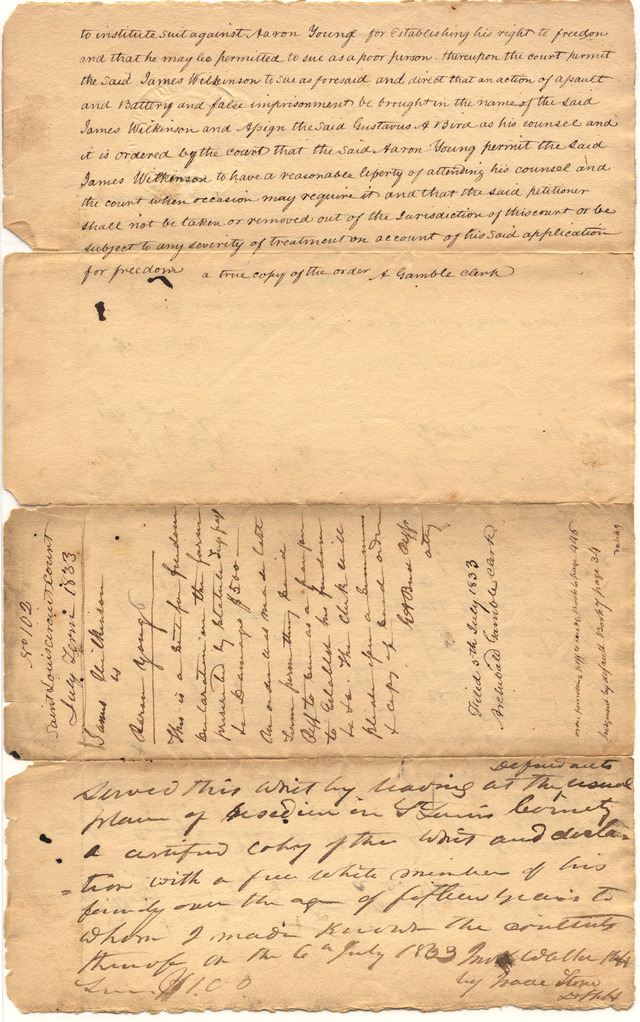 to institute suit against Aaron Young for Establishing his right to freedom
and that he may be permitted to sue as a poor person. thereupon the court permit
the said James Wilkinson to sue as foresaid and direct that an action of assault
and Battery and false imprisonment be brought in the name of the said
James Wilkinson and Assign the said Gustavus A Bird as his counsel and
it is ordered by the court that the said Aaron Young permit the said
James Wilkinson to have a reasonable leperty of attending his counsel and
the court when occasion may require it and that the said petitioner
shall not be taken or removed out of the Jurisdiction of this court or be
subject to any severity of treatment on account of his said application
for freedom a true copy of the order A Gamble clerk
No 102
Saint Louis circuit court
July Term 1833
James Wilkinson
vs
Aaron Young
This is a suit for freedom
declaration in the form
by Statute
Damages $500
An order was made last
Term permitting said
Plff to sue as a poor person
to Establish his freedom
&c &c. The Clerk will
please issue a summons
& copy of said order
G A Bird Plffs
atty
Filed 5th July 1833
Archibald Gamble Clerk
order permitting Plff to sue &c Book 6 page 446
Judgment by default Book 7 page 34
Served this writ by leaving at the Defendants usual
place of residence in St Louis County
a certified copy of the writ and decla-
-tion with a free white member of his
family over the age of fifteen years to
whom I made known the contents
thereof on the 6th July 1833 Walker Shff
$1.00 by Isaac Stone
D Shff